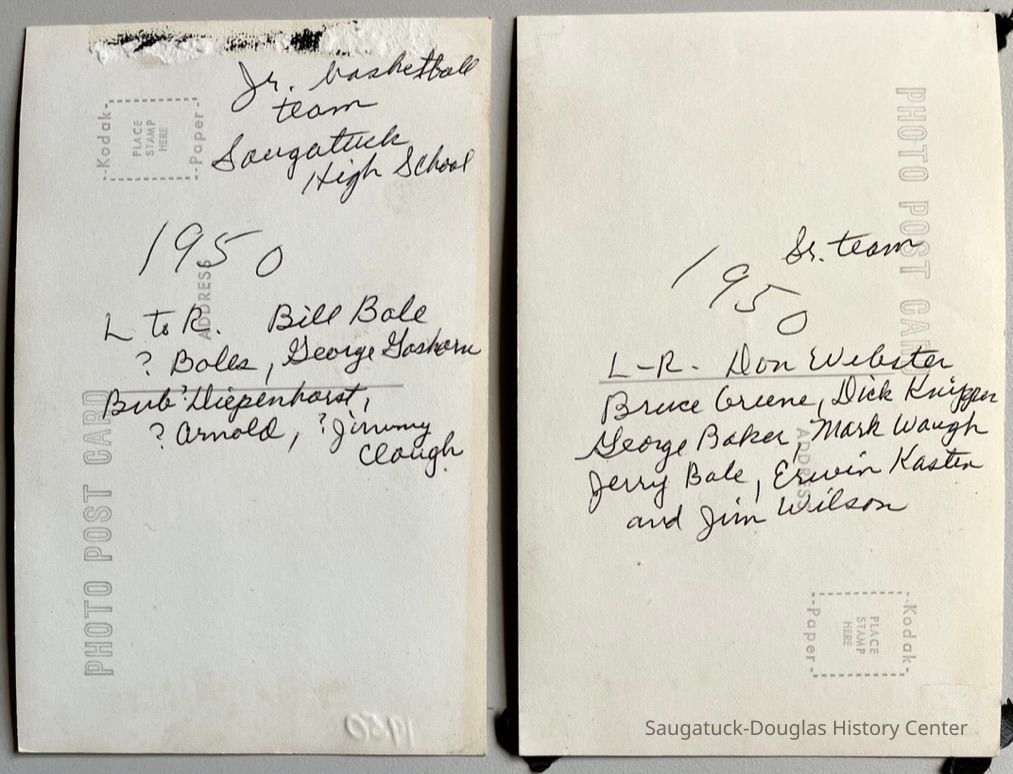 Jr. basketball
team
Saugatuck
High School
--Kodak--
PLACE
STAMP
HERE
--Paper--
1950
ADDRESS
L to R. Bill Bale
? Boles, George Goshorn
Bub? Diepenhorst,
? Arnold, ? Jimmy
Clough
PHOTO POST CARD
1950
PHOTO POST CARD
Sr. team
1950
L-R. Don Webster
Bruce Greene, Dick Knipper
George Baker, Mark Waugh
Jerry Bale, Erwin Kasten
and Jim Wilson
ADDRESS
--Kodak--
PLACE
STAMP
HERE
--Paper--
Saugatuck-Douglas History Center